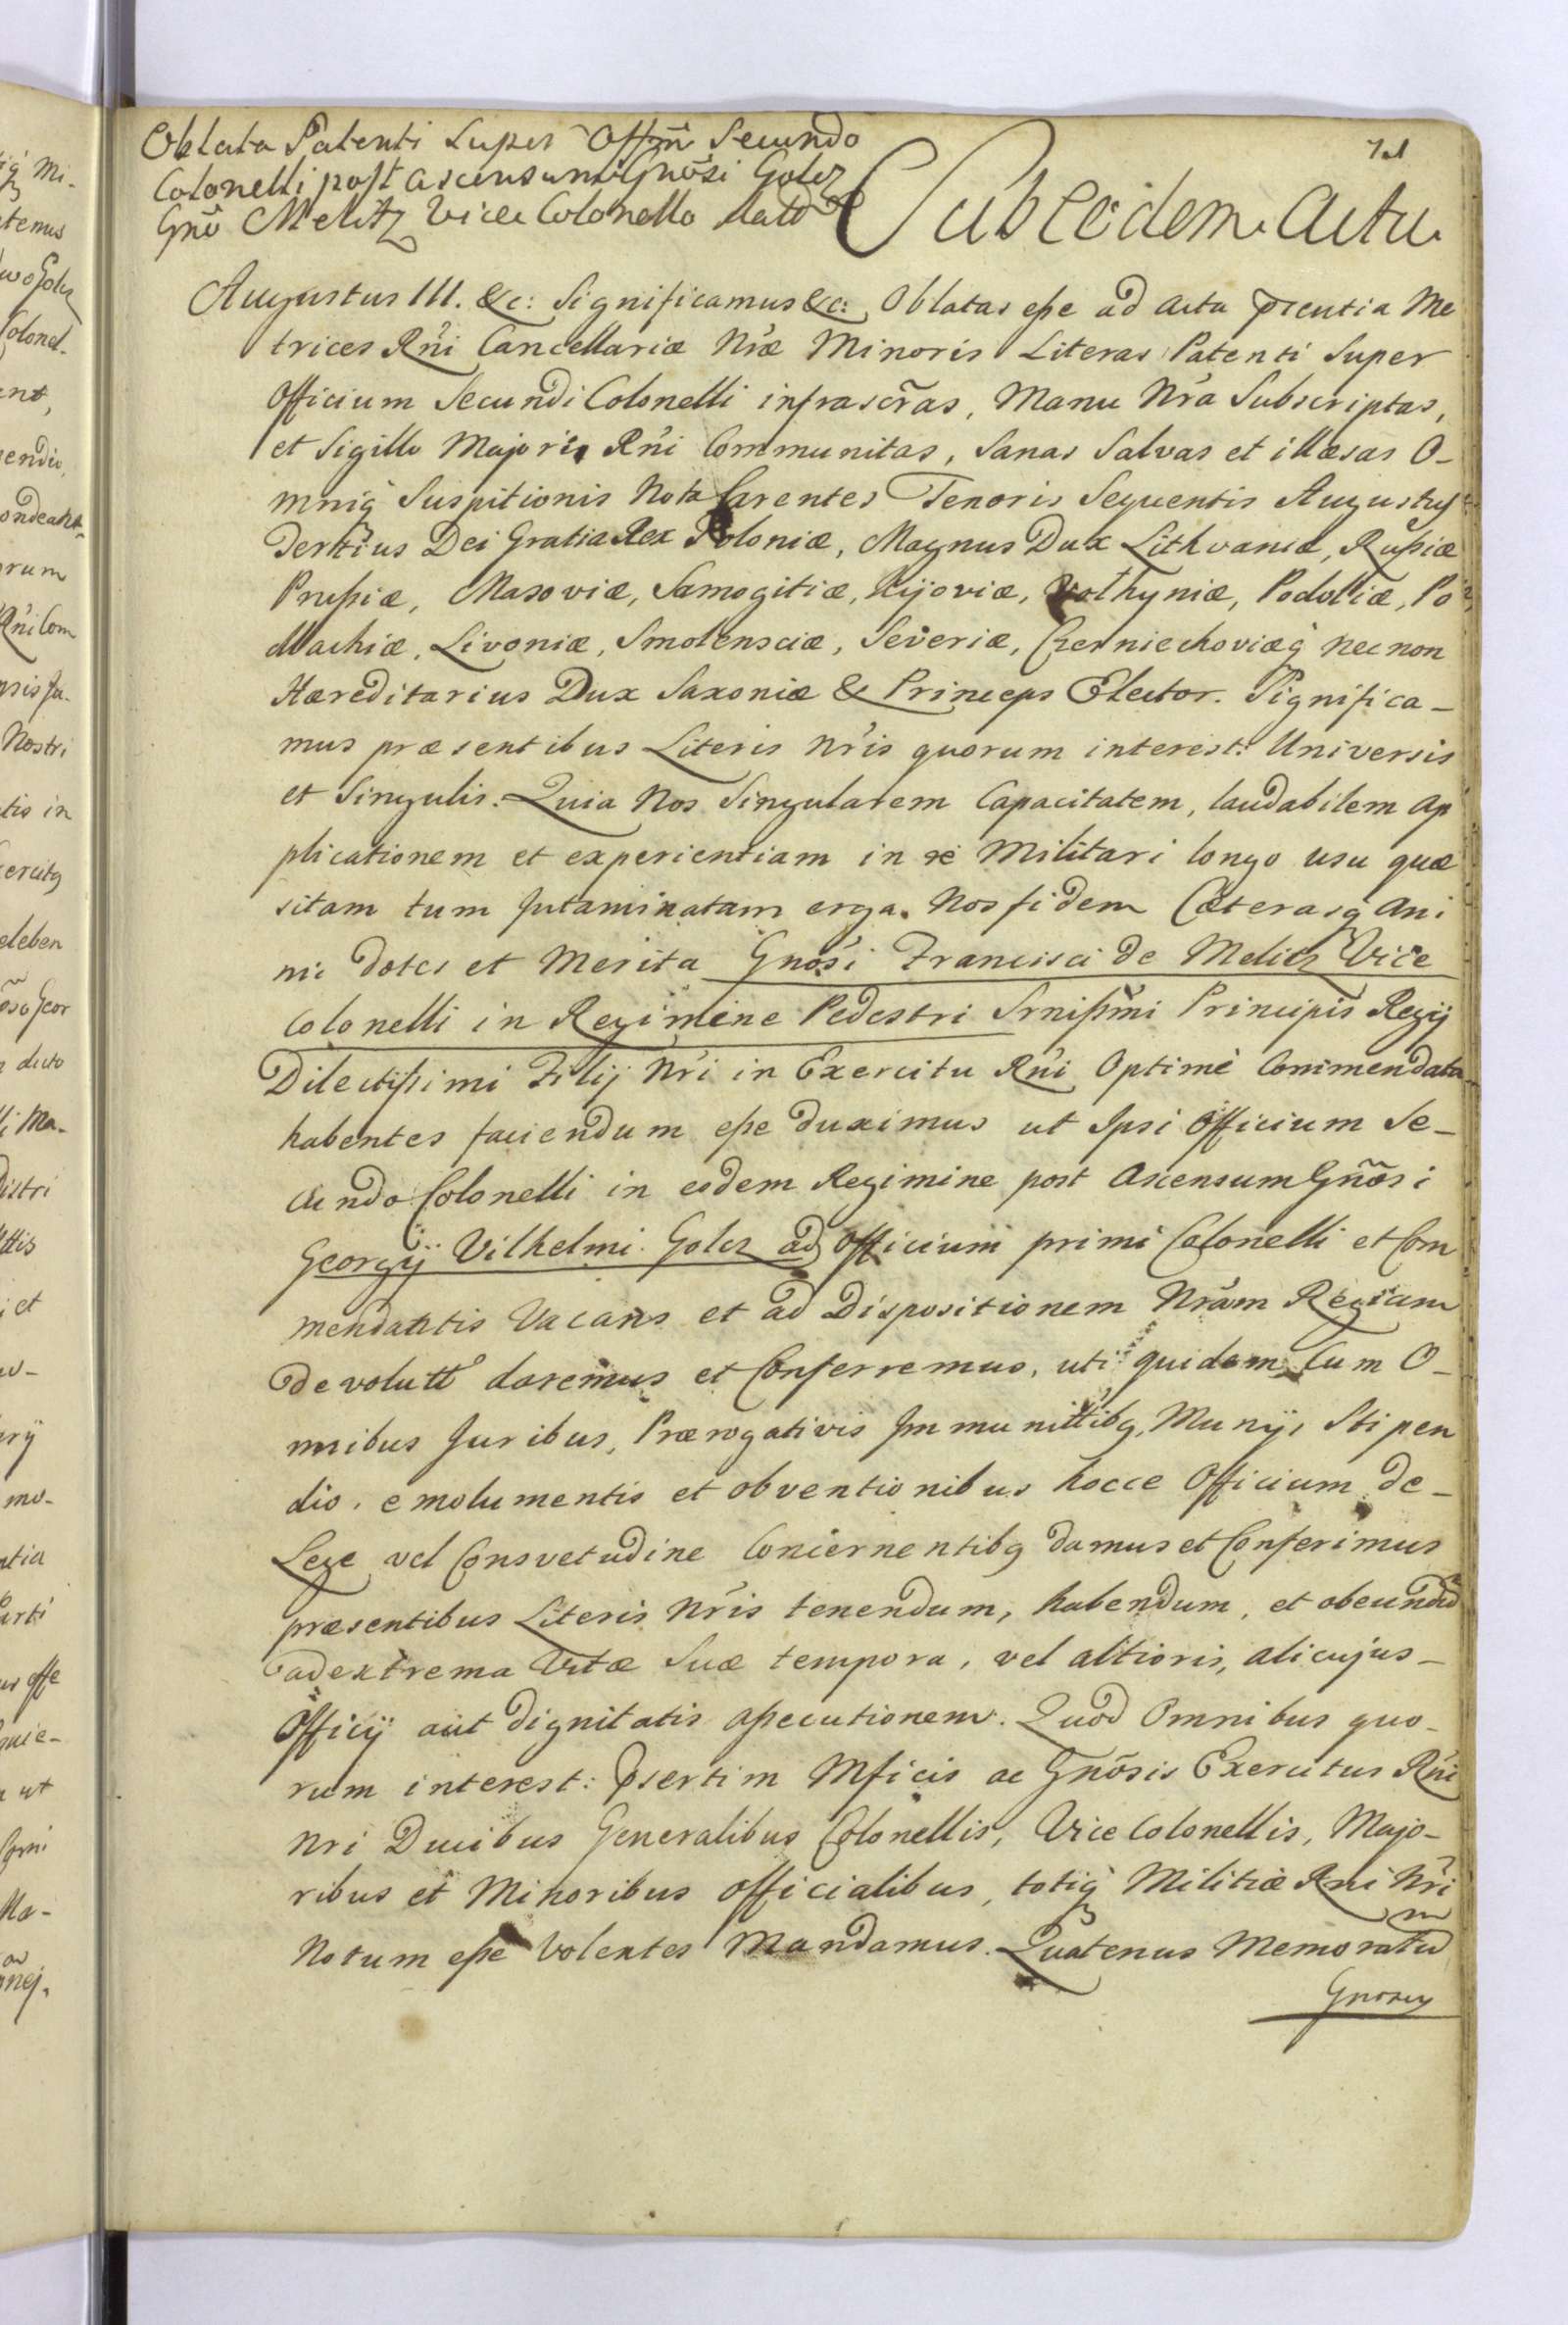 Oblata Patenti Super Offm̃ Secundo
Colonelli post ascensum Gnõsi Golcz
Gnõ Melitz Vice Colonello dat
Sub eodem Actu
Augustus III. &c: Significamus &c: Oblatas eße ad Acta pr̃entia Me
trices Rñi Cancellariæ Nr̃æ Minoris Literas Patenti Super
Officium Secundi Colonelli infrascr̃as, Manu Nr̃a Subscriptas,
et Sigillo Majoris Rñi Communitas, Sanas Salvas et illæsas O-
mniq́ Suspitionis Nota Carentes Tenoris Sequentis Augustus
Tertius Dei Gratia Rex Poloniæ, Magnus Dux Lithvaniæ, Rußiæ
Prußiæ, Masoviæ, Samogitiæ, Kijoviæ, Volhyniæ, Podoliæ, Po
dlachiæ, Livoniæ, Smolensciæ, Severiæ, Czerniechoviæq́ nec non
Hæreditarius Dux Saxoniæ & Princeps Elector. Significa-
mus præsentibus Literis Nr̃is quorum interest: Universis
et Singulis. Quia Nos Singularem Capacitatem, laudabilem Ap
plicationem et experientiam in re Militari longo usu quæ
sitam tum Intaminatam erga Nos fidem Cæterasq́ Ani
mi dotes et Merita Gnõsi Francisci de Melicz Vice
Colonelli in Regimine Pedestri Srnißm̃i Principis Regij
Dilectißimi Filij Nr̃i in Exercitu Rñi Optimè Commendata
habentes faciendum eße duximus ut Ipsi Officium Se-
cundo Colonelli in eodem Regimine post Ascensum Gñõsi
Georgij Vilhelmi Golcz ad Officium primi Colonelli et Com
mendantis Vacans et ad Dispositionem Nr̃am Regiam
devolutt daremus et Conferremus, uti quidem Cum O-
mnibus Juribus, Prærogativis Immunittibq, Munijs Stipen
dio, emolumentis et obventionibus hocce Officium de-
Lege vel Consvetudine Concernentibq damus et Conferimus
præsentibus Literis Nr̃is tenendum, habendum, et obeundũ
ad extrema Vitæ Suæ tempora, vel altioris, alicujus-
Officij aut dignitatis aßecutionem. Quod Omnibus quo-
rum interest: pr̃sertim Mficis ac Gnõsis Exercitus Rñi
Nri Ducibus Generalibus Colonellis, Vice Colonellis, Majo-
ribus et Minoribus Officialibus, totiq́ Militiæ Rni Nr̃i
Notum eße Volentes Mandamus. Quatenus Memoratum
Gnosum